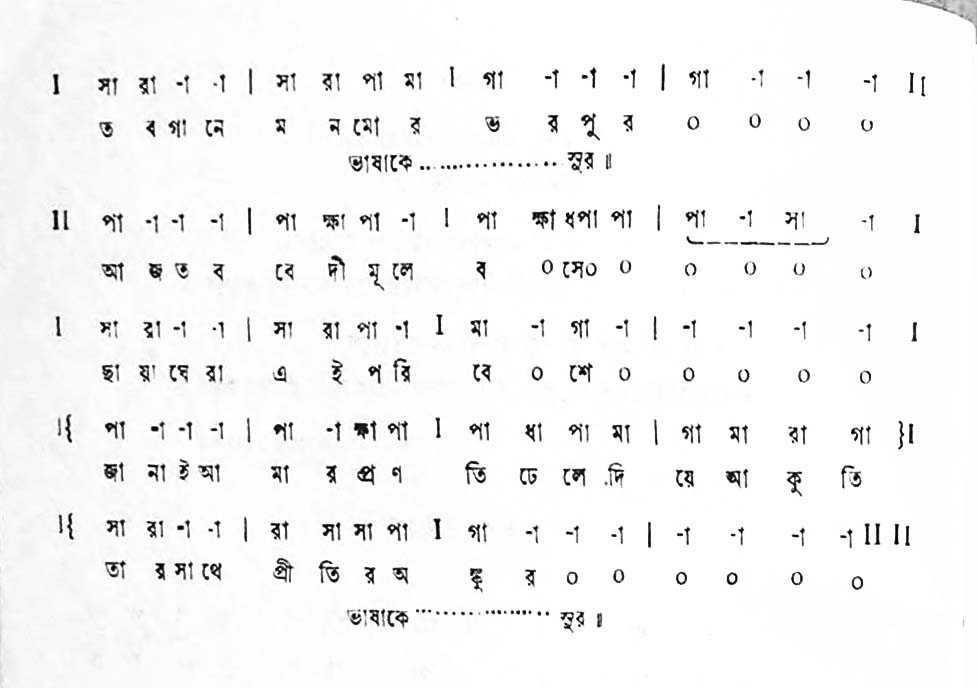 I সা রা -া -া | সা রা পা মা I গা -া -া -া | গা -া -া -া II
ত ব গা নে ম ন মো র ভ র পু র ০ ০ ০ ০
ভাষাকে .................... সুর ॥
II পা -া -া -া | পা ক্ষা পা -া I পা ক্ষা ধপা পা | পা -া সা -া I
আ জ ত ব বে দী মূ লে ব ০ সে০ ০ ০ ০ ০ ০
I সা রা -া -া | সা রা পা -া I মা -া গা -া | -া -া -া -া I
ছা য়া ঘে রা এ ই প রি বে ০ শে ০ ০ ০ ০ ০
I{ পা -া -া -া | পা -া ক্ষা পা I পা ধা পা মা | গা মা রা গা }I
জা না ই আ মা র প্র ণ তি ঢে লে দি য়ে আ কু তি
I{ সা রা -া -া | রা সা সা পা I গা -া -া -া | -া -া -া -া II II
তা র সা থে প্রী তি র অ ঙ্কু র ০ ০ ০ ০ ০ ০
ভাষাকে .................... সুর ॥